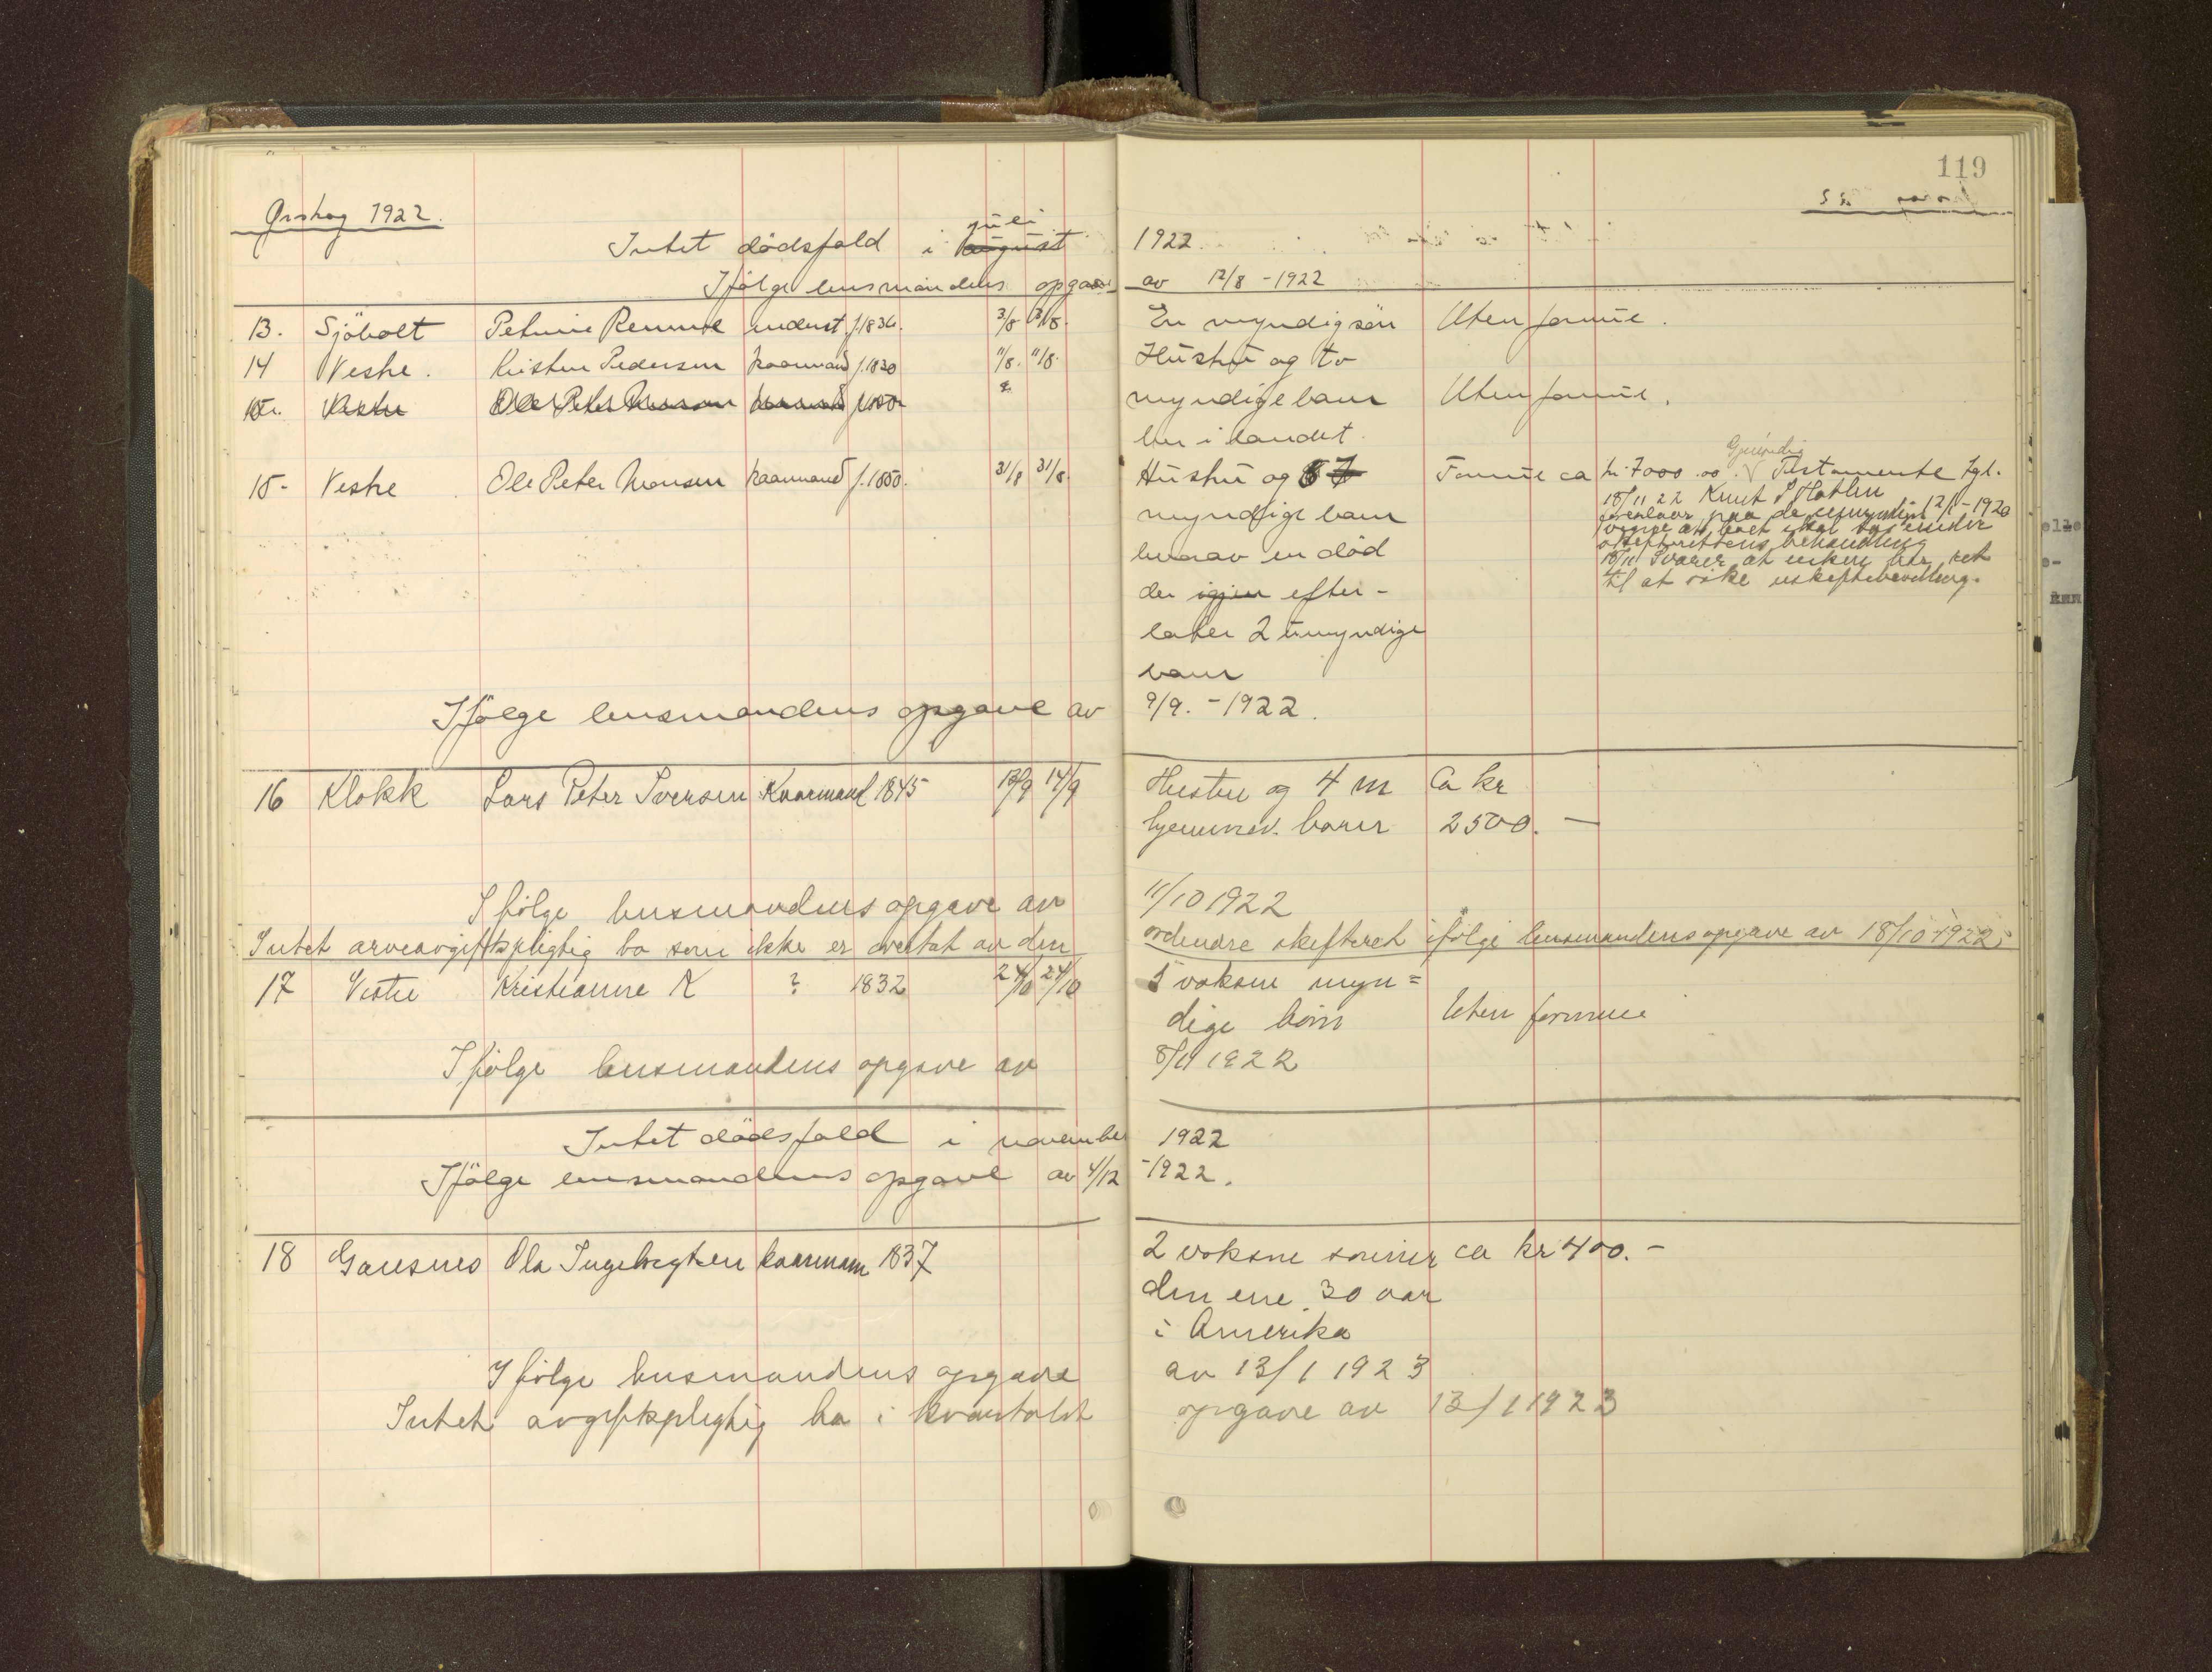 119
Ørskog 1922.
juli
Intet dödsfald i august 1922.
Ifölge lensmandens opgave av 12/8 - 1922
13. Sjöholt Petrine Remme inderst f. 1836. 3/8 3/8. En myndig sön Uten formue.
14 Vestre. Kristen Pedersen kaarmand f. 1830 11/8. 11/8. Hustru og to
15. Vestre Ole Peter Monsen kaarmand f. 1850. myndige barn Uten formue.
her i landet.
15- Vestre Ole Peter Monsen kaarmand f. 1850. 31/8 31/8. Hustru og 8 7 Formue ca kr. 7000.00. Gjensidig Testamente tgl.
myndige barn
hvorav en död
der igjen efter-
later 2 umyndige
barn
18/11 22 Knut P Hatlen
paa de umyndiges 12/1 - 1920
vegne at boet skal tas under
skifterettens behandling
18/11 Svarer at enken har ret
til at söke uskiftebevilling.
Ifölge lensmandens opgave av 9/9. - 1922.
16 Klokk Lars Peter Iversen Kaarmand 1845 13/9 14/9 Hustru og 4 m Ca kr
hjemmev. barn 2500. —
Ifölge lensmandens opgave av 11/10 1922
Intet arveavgiftspligtig bo som ikke er overtat av den ordinære skifteret ifölge lensmandens opgave av 18/10 1922.
17 Vestre Kristianne K ? 1832 24/10 24/10 5 voksne myn=
dige börn Uten formue
Ifölge lensmandens opgave av 8/11 1922
Intet dödsfald i november 1922
Ifölge lensmandens opgave av 4/12 - 1922.
18 Gausnes Ola Ingebrigtsen kaarmann 1837 2 voksne sönner ca kr 400.-
den ene 30 aar
i Amerika
Ifölge lensmandens opgave av 13/1 1923
Intet avgiftspligtig bo i kvartalet opgave av 13/1 1923